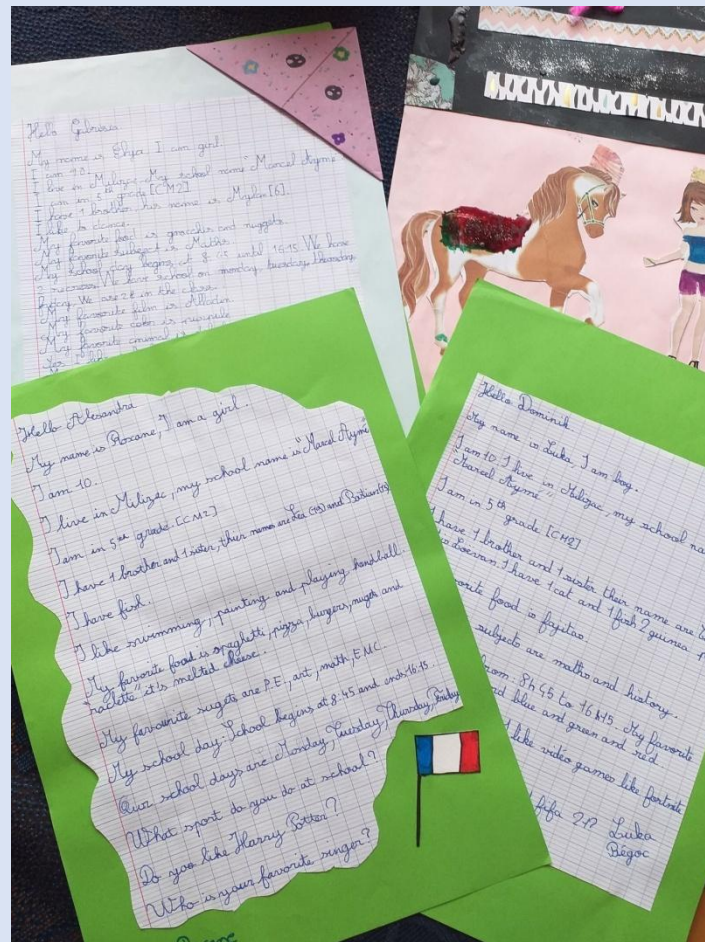 Hello
My name is Elya. I am girl.
I am 10.
I live in Milizac. My school name "Marcel Aymé"
I am in 5th grade [CM2]
I have 1 brother, his name is Mylan [6].
I like to dance.
My favorite food is gnocchis and nuggets
My favorite subject is Maths.
My school day begins at 8:45 until 16:15 We have
2 recesses. We have school on monday, tuesday, thursday
Friday. We are 28 in the class.
My favorite film is Alladin.
My favorite color is
My favorite animal is
Hello Alexandra
My name is Roxane, I am a girl.
I am 10.
I live in Milizac, my school name is "Marcel Aymé
I am in 5th grade. [CM2]
I have 1 brother and 1 sister, their names are Léa and Bastian
I have fish.
I like swimming, painting and playing handball.
My favorite food is spaghetti, pizza, burgers, nugets and
"raclette" it's melted cheese.
My favourite sugets are P.E., art, math, EMC.
My school day: School begins at 8:45 and ends 16:15.
Our school days are Monday, Tuesday, Thursday, Friday
What sport do you do at school?
Do you like Harry Potter?
Who is your favorite singer?
Roxane
Hello Dominik
My name is Luka. I am boy.
I am 10. I live in Milizac, my school na
"Marcel Aymé"
I am in 5th grade [CM2]
I have 1 brother and 1 sister their name are
Loevan. I have 1 cat and 1 fish 2 guinea p
orite food is fajitas.
subjects are maths and history.
from: 8h45 to 16h15. My favorite
blue and green and red
I like video games like fortnite
fifa 21? Luka
Bégoc